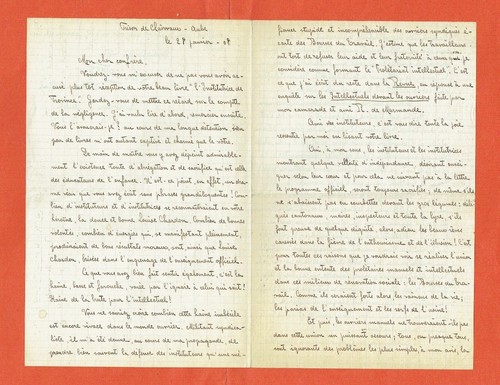 Prison de Clairvaux - Aube
le 28 janvier - 08
Mon cher confrère,
Voudrez-vous m'excuser de ne pas vous avoir ac-
cusé plus tôt réception de votre beau livre "l'Institutrice de
Province". Gardez-vous de mettre ce retard sur le compte
de la négligence. J'ai voulu lire d'abord, remercier ensuite.
Vous l'avouerai-je ? au cours de ma longue détention bien
peu de livres m'ont autant captivé et charmé que le vôtre.
De main de maître vous y avez dépeint admirable-
ment l'existence toute d'abnégation et de sacrifices qui est celle
des éducateurs de l'enfance. N'est-ce point, en effet, un dra-
me réel que vous avez écrit sans phrases grandiloquentes ! Com-
bien d'instituteurs et d'institutrices se reconnaîtront en votre
héroïne, la douce et bonne Louise Chardon. Combien de bonnes
volontés, combien d'énergies qui, se manifestant pleinement,
produiraient de bons résultats moraux, ont ainsi que Louise
Chardon, brisées dans l'engrenage de l'enseignement officiel.
Ce que vous avez bien fait sentir également, c'est la
haine, basse et farouche, vouée par l'ignare à celui qui sait !
Haine de la brute pour l'intellectuel !
Vous ne sauriez croire combien cette haine imbécile
est encore vivace dans le monde ouvrier. Militant syndica-
liste, il m'a été donné, au cours de ma propagande, de
prendre bien souvent la défense des instituteurs qu'une mé-
fiance stupide et incompréhensible des ouvriers syndiqués é-
carte des Bourses du Travail. J'estime que les travailleurs
ont tort de refuser leur aide et leur fraternité à ceux que je
considère comme formant le "prolétariat intellectuel". C'est
ce que j'ai écrit du reste dans la Revue, en réponse à une
enquête sur les Intellectuels devant les ouvriers faite par
mon camarade et ami Pl. de Marmande.
Ami des instituteurs, c'est vous dire toute la joie
ressentie par moi en lisant votre livre.
Oui, à nos yeux, les instituteurs et les institutrices
montrant quelque velléité d'indépendance, désirant ensei-
gner selon leur cœur et pour cela ne suivant pas à la lettre
le programme officiel, seront toujours sacrifiés ; de même s'ils
ne s'abaissent pas en courbettes devant les gros légumes : délé-
gués cantonaux, maires, inspecteurs et toute la lyre, s'ils
font preuve de quelque dignité, alors adieu les beaux rêves
caressés dans la fièvre de l'enthousiasme et de l'illusion ! C'est
pour toutes ces raisons que je voudrais voir se réaliser l'union
et la bonne entente des prolétaires manuels et intellectuels
dans ces milieux de rénovation sociale : les Bourses du Tra-
vail. Comme ils seraient forts alors les vaincus de la vie ;
les parias de l'enseignement et les serfs de l'usine !
Et puis, les ouvriers manuels ne trouveraient-ils pas
dans cette union un puissant secours ; tous, ou presque tous,
sont ignorants des problèmes les plus simples, à mon avis, la